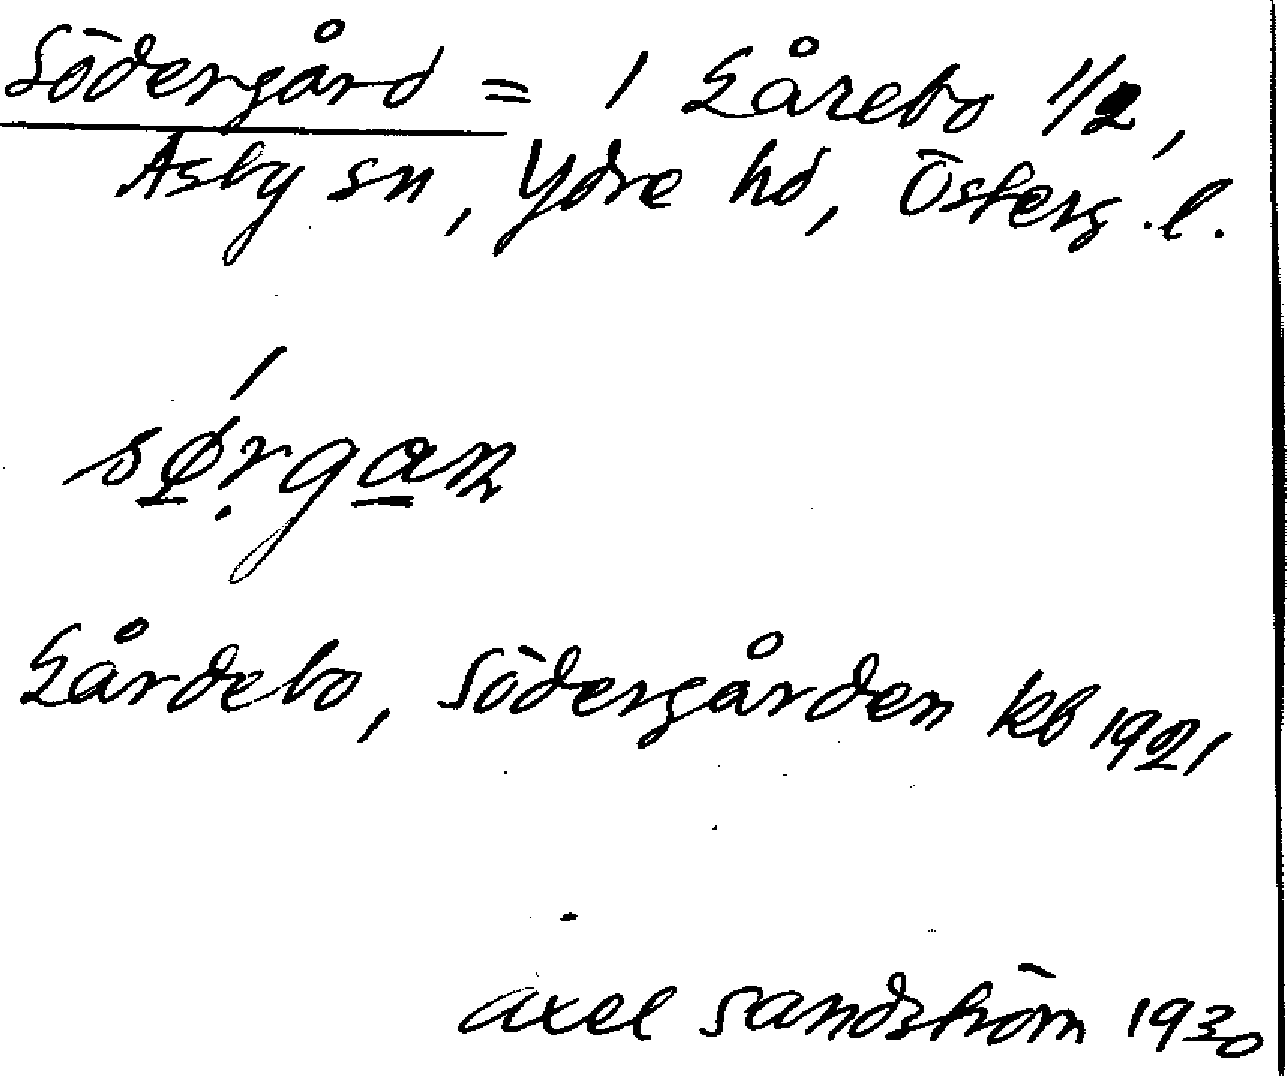 Södergård = 1 Gårebo 1/2,
Asby sn, Ydre hd, Österg.l.
sø̱ṛga̱n
Gårdebo, Södergården kb 1921
Axel Sandström 1930